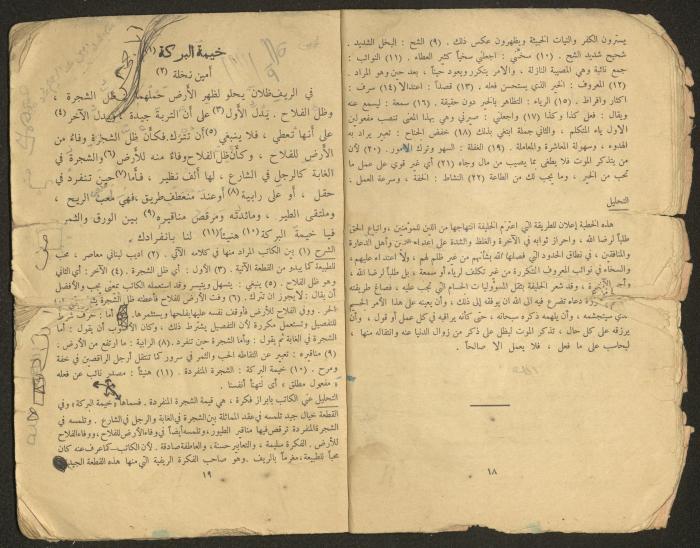 يسترون الكفر والنيات الخبيثة ويظهرون عكس ذلك . (٩) الشح : البخل الشديد .
شحيح شديد الشح . (١٠) سختني : اجعلني سخياً كثير العطاء . (١١) النوائب :
جمع نائبة وهي المصيبة النازلة . والامر يتكرر ويعود حيناً بعد حين وهو المراد .
(١٢) المعروف : الخير الذي يستحسن فعله . (١٣) قصداً : اعتدالا (١٤) سرف :
اكثار وافراط . (١٥) الرياء : التظاهر بالخير دون حقيقة . (١٦) سمعة : ليسمع عنه
ويقال : فعل كذا وكذا (١٧) واجعلني : صيرني وهي بهذا المعنى تنصب مفعولين
الاول ياء المتكلم ، والثاني جملة ابتغي بذلك (١٨) خفض الجناح : تعبير يراد به
الهدوء ، وسهولة المعاشرة والمعاملة . (١٩) الغفلة : السهو وترك الامور . (٢٠) لأن
من يتذكر الموت فلا يطغى بما يصيب من مال وجاه (٢١) أي غير قوي على عمل ما
تحب من الخير ، وما يجب لك من الطاعة (٢٢) النشاط : الخفة ، وسرعة العمل .
التحليل
هذه الخطبة إعلان للطريقة التي اعتزم الخليفة انتهاجها من اللين للمؤمنين ، واتباع الحق
طلباً لرضا الله ، واحراز ثوابه في الآخرة والغلظ والشدة على اعداء الدين وأهل الدعارة
والمنافقين ، في نطاق الحدود التي فصلها الله بشأنهم من غير ظلم لهم ، ولا اعتداء عليهم ،
والسخاء في نوائب المعروف المتكررة من غير تكلف لرياء أو سمعة ، بل طلباً لرضا الله ،
الخليفة بثقل المسؤوليات الجسام التي تجب عليه ، فصاغ طريقته
دعاء تضرع فيه الى الله ان يوفقه إلى ذلك ، وأن يعينه على هذا الأمر
سيتجشمه ، وأن يلهمه ذكره سبحانه ، حتى كأنه يراقبه في كل عمل أو قول ، وأن
يرزقه على كل حال ، تذكر الموت ليظل على ذكر من زوال الدنيا عنه وانتقاله منها ،
ليحاسب على ما فعل ، فلا يعمل الا صالحاً .
١٨
خيمة البركة (١)
أمين نخلة (٢)
في الريف ظلان يحلو لظهر الأرض حملهما : ظل الشجرة ،
وظل الفلاح . يدل الأول (٣) على أن التربة جيدة ، ويدل الآخر (٤)
على أنها تعطي ، فلا ينبغي (٥) أن تترك . فكأن ظل الشجرة وفاء من
الأرض للفلاح ، وكأن ظل الفلاح وفاء منه للأرض (٦) والشجرة في
الغابة كالرجل في الشارع ، لها ألف نظير ، فأما (٧) حين تنفرد في
حقل ، أو على رابية (٨) أو عند منعطف طريق ، فهي ملعب الريح ،
وملتقى الطير ، ومائدته ومرقص مناقيره (٩) بين الورق والثمر
فيا خيمة البركة (١٠) هنيئاً (١١) لنا بانفرادك .
الشرح (١) يبين الكاتب المراد منها في كلامه الآتي . (٢) اديب لبناني معاصر ، محب
للطبيعة كما يبدو من القطعة الآتية . (٣) الأول : أي ظل الشجرة . (٤) الآخر : أي الثاني
وهو ظل الفلاح . (٥) ينبغي : يتسهل ويتيسر وقد استعمله الكاتب بمعنى يجب والأفضل
أن يقال : لا يجوز ان تترك . (٦) وفت الأرض للفلاح فأعطته ظل الشجرة
الحر . ووفى الفلاح للأرض فأوقف نفسه عليها يفلحها ويستثمرها . (٧) أما : حرف شرط
للتفصيل وتستعمل مكررة لأن التفصيل يشترط ذلك ، وكان الأقرب أن يقول : أما
الشجرة في الغابة ثم يقول : وأما الشجرة حين تنفرد . (٨) الرابية : ما ارتفع من الأرض .
(٩) مناقيره : تعبير عن التقاطه الحب والثمر في سرور كما تنتقل أرجل الراقصين في خفة
ومرح . (١٠) خيمة البركة : الشجرة المنفردة . (١١) هنيئاً : مصدر نائب عن فعله
ومفعول مطلق ، أي لتهنأ أنفسنا .
التحليل عني الكاتب بابراز فكرة ، هي قيمة الشجرة المنفردة . فسماها « خيمة البركة » وفي
القطعة خيال جيد تلمسه في عقد المماثلة بين الشجرة في الغابة والرجل في الشارع . وتلمسه في
الشجرة المنفردة ترقص فيها مناقير الطيور ، وتلمسه أيضاً في وفاء الأرض للفلاح ، ووفاء الفلاح
للأرض . الفكرة سليمة ، والتعابير حسنة ، والعاطفة صادقة . لأن الكاتب – كما عرف عنه كان
محباً للطبيعة ، مغرماً بالريف . وهو صاحب الفكرة الريفية التي منها هذه القطعة الجيدة
١٩